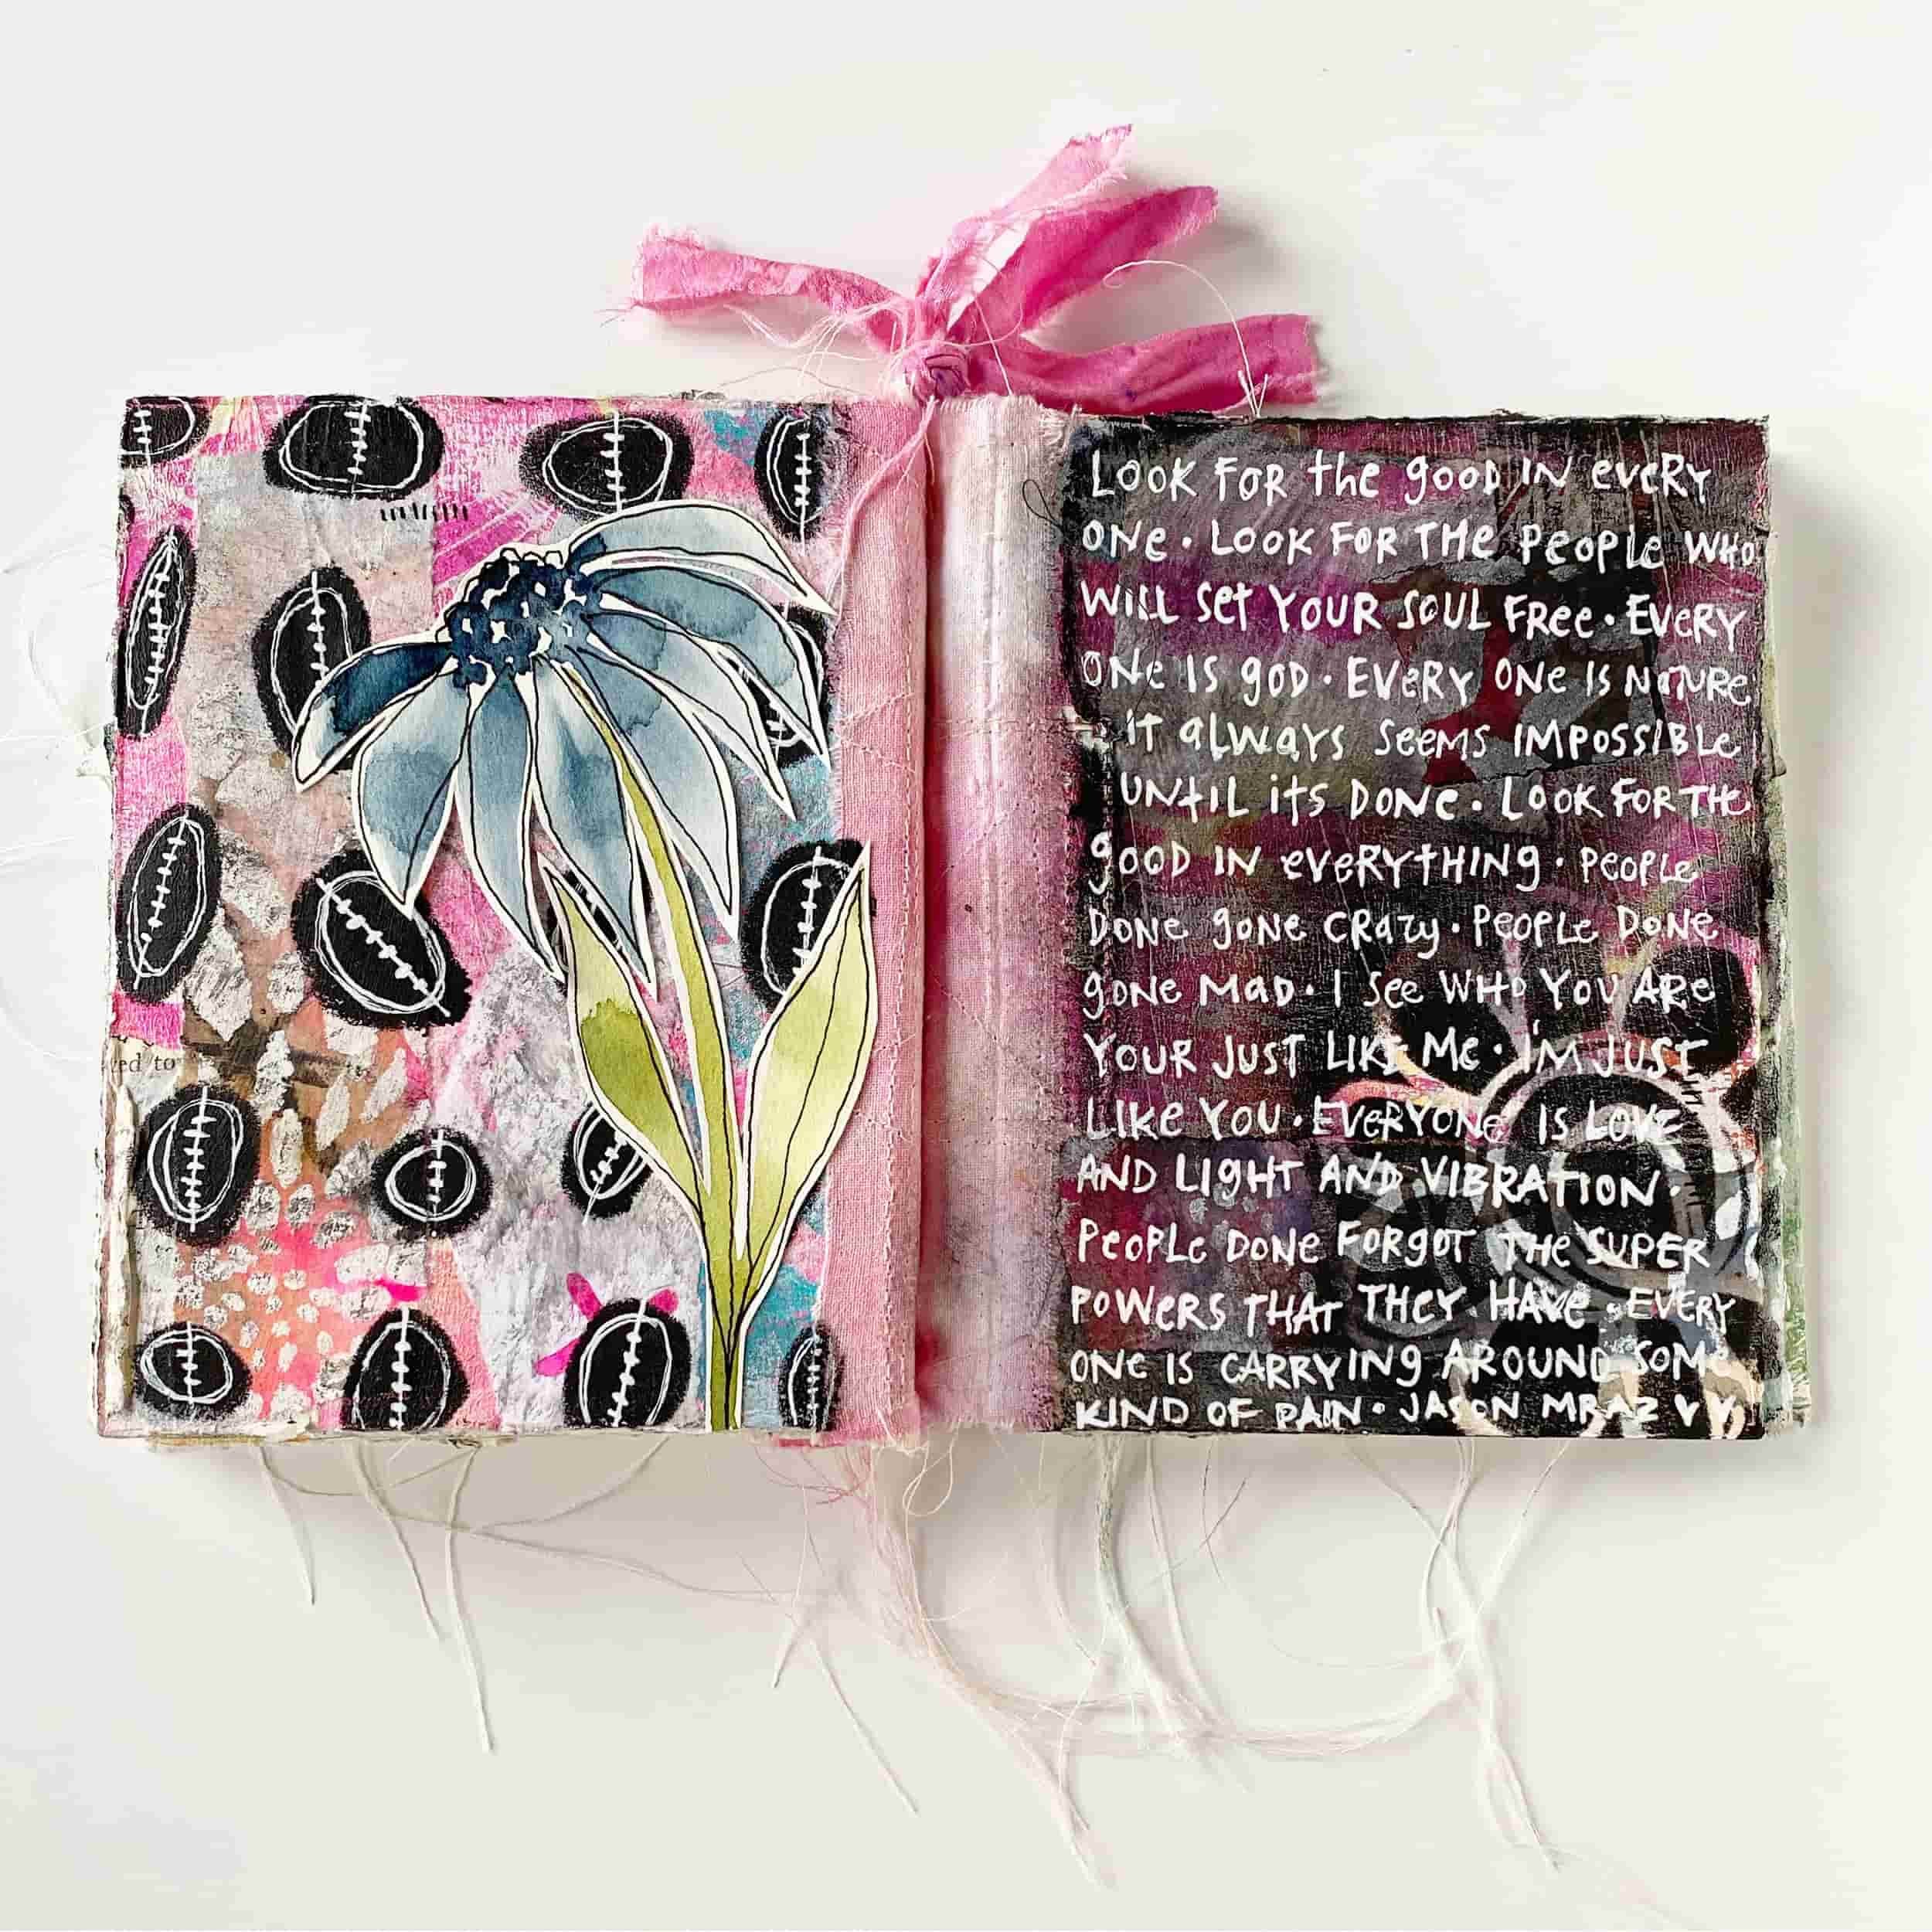 ed to
LOOK FOR the gooD IN eveRY
ONe · LOOK FOR THe PeopLe WHO
WiLL Set YOUR SOUL FRee · EVeRY
ONe IS goD · EVeRY ONe IS NaTURe
iT aLWaYS SeeMS IMPOSSIBLe
UNtiL itS DONe · LOOK FOR THe
gOOD IN eVeRYtHING · PeoPLe
DONe gONe CRazy · PeoPLe DoNe
gONe MaD · I See WHO YOU ARe
YOUR JUST LIKe Me · I'M JUST
LIKe YOU · EVeRYONe IS LOVe
AND LIgHT AND VIBRATION ·
PeOPLe DONe FORgOT THe SUPeR
POWeRS THAT THeY HAVe · EVeRY
ONe IS CARRYINg AROUND SOMe
KIND OF PAIN · JASON MRAZ